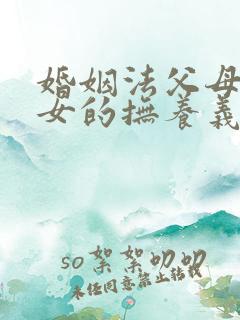 婚姻法父母
女的撫養義
so絮絮叨叨
未经同意禁止转载